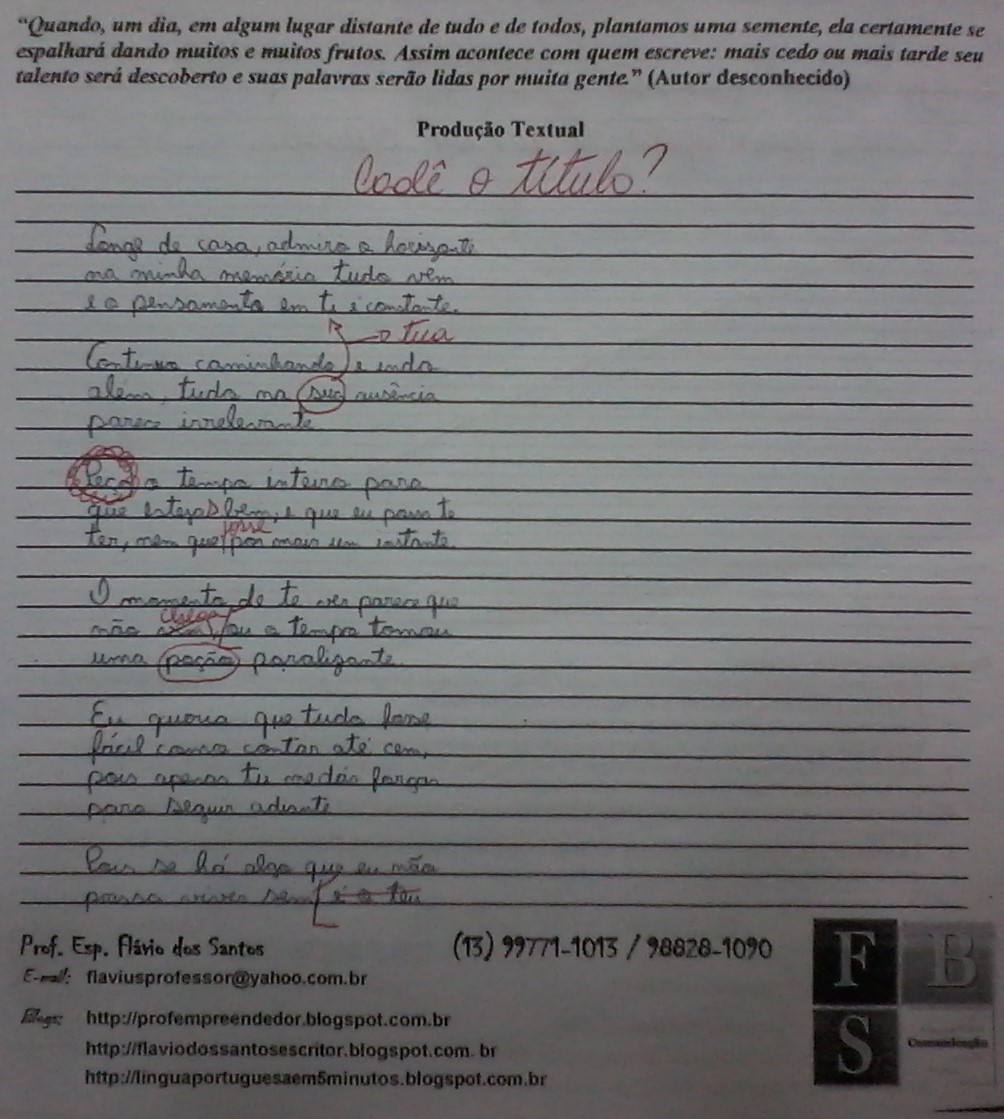 “Quando, um dia, em algum lugar distante de tudo e de todos, plantamos uma semente, ela certamente se
espalhará dando muitos e muitos frutos. Assim acontece com quem escreve: mais cedo ou mais tarde seu
talento será descoberto e suas palavras serão lidas por muita gente.” (Autor desconhecido)
Produção Textual
Cadê o título?
Longe de casa, admiro o horizonte
na minha memória tudo vêm
e o pensamento em ti é constante.
tua
Continuo caminhando e indo
além, tudo na sua ausência
parece irrelevante
Peço o tempo inteiro para
que estejas bem, e que eu possa te
fosse
ter, nem que por mais um instante.
O momento de te ver parece que
chega
não vem, ou o tempo tomou
uma poção paralizante.
Eu queria que tudo fosse
fácil como contar até cem,
pois apenas tu me dás forças
para seguir adiante
Pois se há algo que eu não
possa viver sem é o teu
Prof. Esp. Flávio dos Santos
(13) 99771-1013 / 98828-1090
E-mail: flaviusprofessor@yahoo.com.br
Blogs: http://profempreendedor.blogspot.com.br
http://flaviodossantosescritor.blogspot.com. br
http://linguaportuguesaem5minutos.blogspot.com.br
F B
S Comunicação